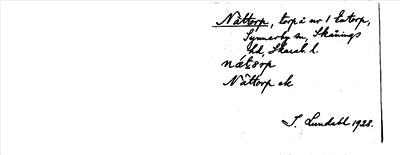 Nättorp, torp å nr 1 Entorp,
Synnerby sn, Skånings
hd, Skarab. l.
Nättorp ek
I. Lundahl 1928.